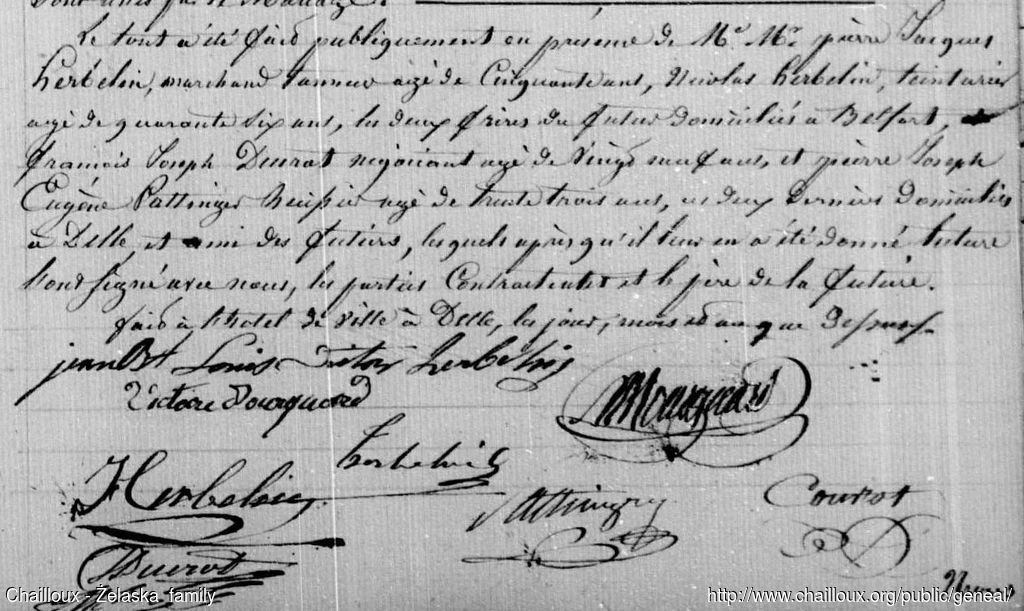 sont unis par le Mariage.
Le tout a été fait publiquement en présence de Mr. Mr. pierre Jacques
herbelin, marchand tanneur agé de Cinquante ans, Nicolas herbelin, teinturier
agé de quarante six ans, les deux frères du futur domiciliés à Belfort,
françois Joseph Ducrot négociant agé de Vingt neuf ans, et pierre Joseph
Eugène Pattinger huissier agé de trente trois ans, ces deux derniers domiciliés
à Delle et ami des futurs, lesquels après qu'il leur en a été donné lecture
l'ont signé avec nous, les parties Contractantes et le père de la future.
fait à l'hôtel de ville à Delle, les jour, mois et an que dessus.
jean Bt Louis Victor herbelin
Victoire Bourquard
herbelin
J Herbelin
Pattinger
Courot
Ducrot
Chailloux - Żelaska family
http://www.chailloux.org/public/geneal/